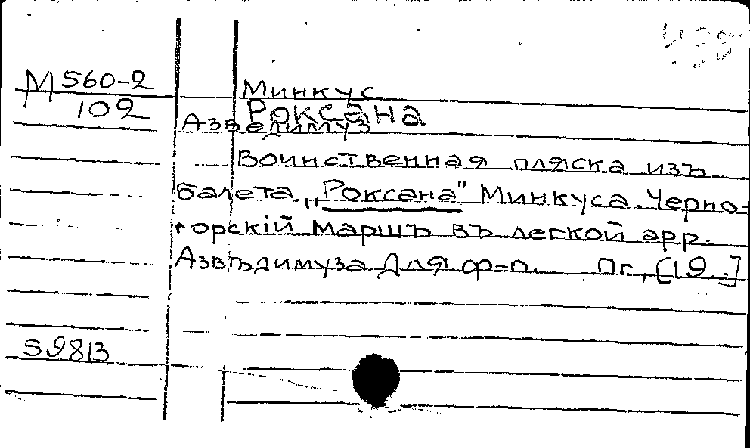 М 560-2
102
Минкус
Роксана
Азведимуз
Воинственная пляска изъ
балета „Роксана" Минкуса. Черно-
горскiй маршъ въ легкой арр.
Азвѣдимуза Для ф-п. Пг., [19 .]
S9813